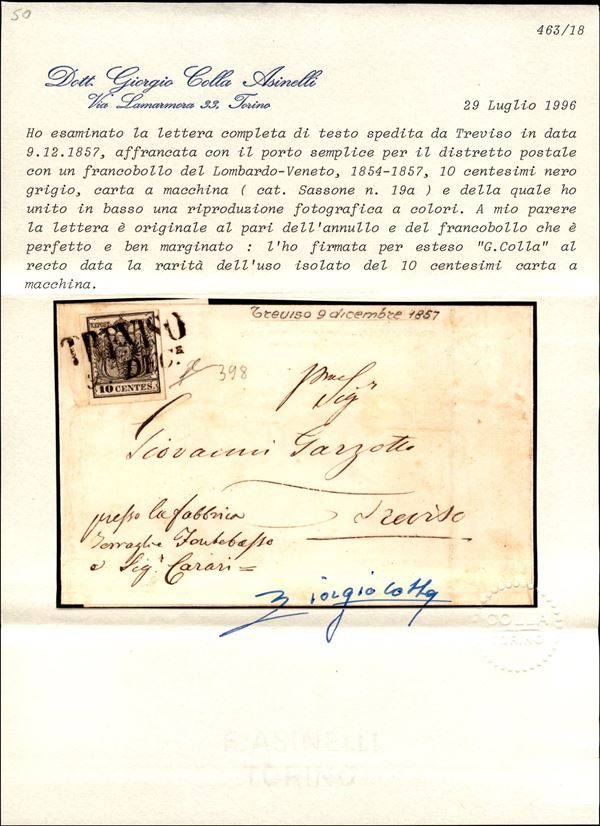 50
463/18
Dott. Giorgio Colla Asinelli
Via Lamarmora 33, Torino
29 Luglio 1996
Ho esaminato la lettera completa di testo spedita da Treviso in data
9.12.1857, affrancata con il porto semplice per il distretto postale
con un francobollo del Lombardo-Veneto, 1854-1857, 10 centesimi nero
grigio, carta a macchina ( cat. Sassone n. 19a ) e della quale ho
unito in basso una riproduzione fotografica a colori. A mio parere
la lettera è originale al pari dell'annullo e del francobollo che è
perfetto e ben marginato : l'ho firmata per esteso "G.Colla" al
recto data la rarità dell'uso isolato del 10 centesimi carta a
macchina.
Treviso 9 dicembre 1857
TREVISO
DEC.
10 CENTES.
398
Sigr
Giovanni Garzotto
Treviso
presso la fabbrica
Terraglie Fontebasso
a Sigr Carari =
Giorgio Colla
COLLA
TORINO
F. ASINELLI
TORINO